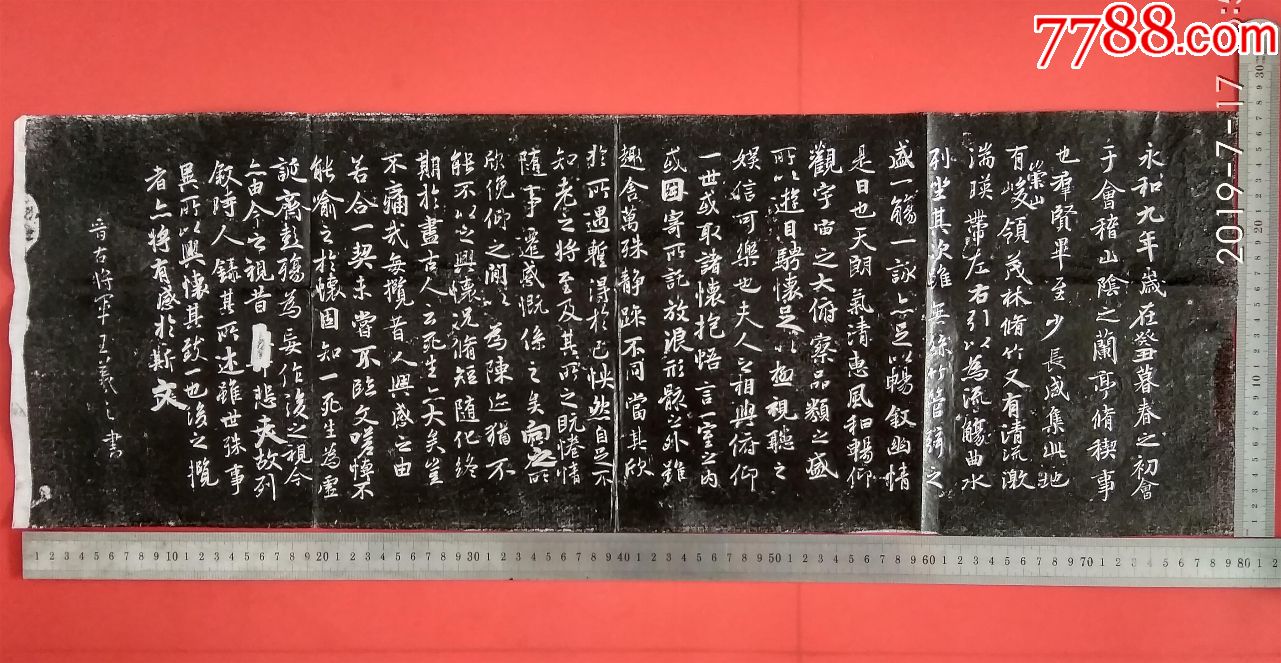 永和九年歲在癸丑暮春之初會
于會稽山陰之蘭亭脩稧事
也羣賢畢至少長咸集此地
有崇山峻領茂林脩竹又有清流激
湍暎帶左右引以為流觴曲水
列坐其次雖無絲竹管絃之
盛一觴一詠亦足以暢敘幽情
是日也天朗氣清惠風和暢仰
觀宇宙之大俯察品類之盛
所以遊目騁懷足以極視聽之
娛信可樂也夫人之相與俯仰
一世或取諸懷抱悟言一室之內
或因寄所託放浪形骸之外雖
趣舍萬殊靜躁不同當其欣
於所遇暫得於己怏然自足不
知老之將至及其所之既惓情
隨事遷感慨係之矣向之所
欣俛仰之閒以為陳迹猶不
能不以之興懷況脩短隨化終
期於盡古人云死生亦大矣豈
不痛哉每攬昔人興感之由
若合一契未嘗不臨文嗟悼不
能喻之於懷固知一死生為虛
誕齊彭殤為妄作後之視今
亦由今之視昔悲夫故列
敘時人錄其所述雖世殊事
異所以興懷其致一也後之攬
者亦將有感於斯文
晉右將軍王羲之書
7788.com
2019-7-17